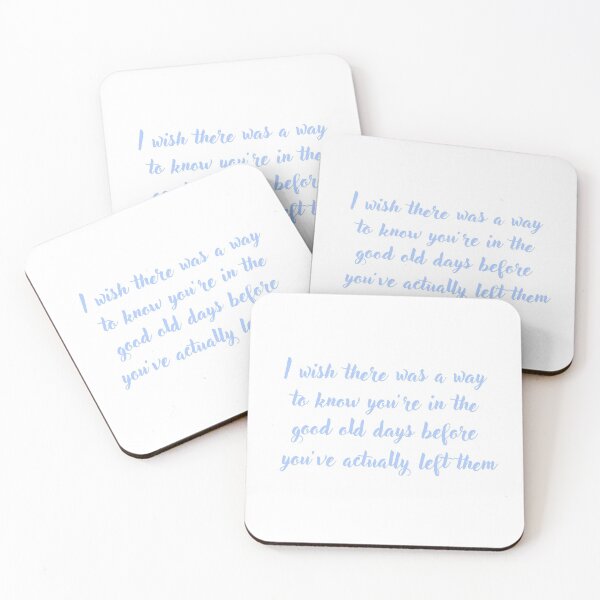 I wish there was a way
to know you're in the
before
left
I wish there was a way
to know you're in the
good old days before
you've actually left them
I wish there was a way
to know you're in the
good old days before
you've actually
I wish there was a way
to know you're in the
good old days before
you've actually left them